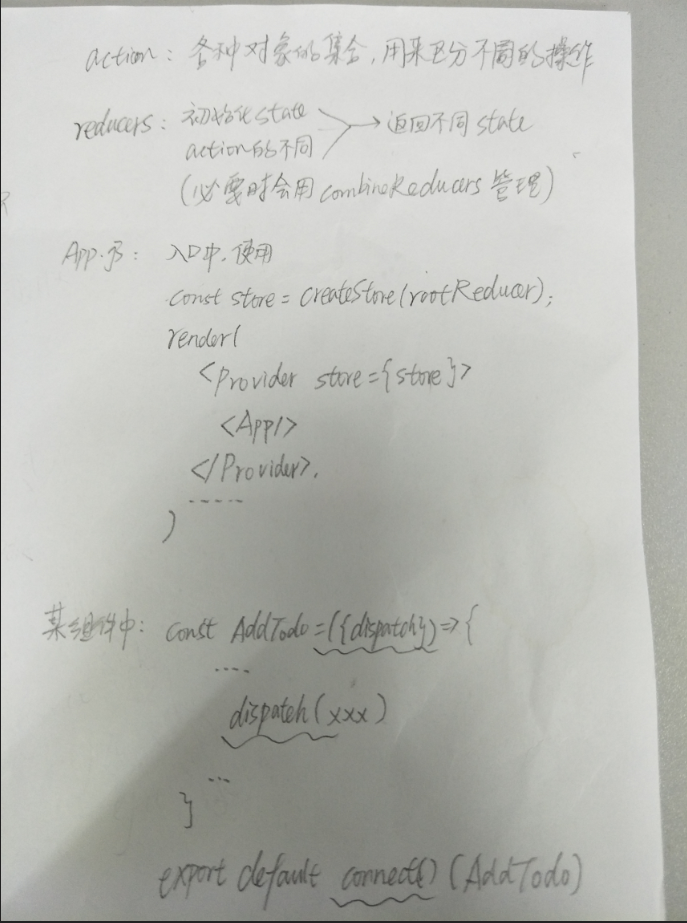 action: 各种对象的集合,用来区分不同的操作
reducers: 初始化state
action的不同 → 返回不同state
(必要时会用combineReducers管理)
App.js: 入口中,使用
const store = createStore(rootReducer);
render(
<Provider store={store}>
<App/>
</Provider>,
.....
)
某组件中: const AddTodo=({dispatch})=>{
....
dispatch(xxx)
...
}
export default connect()(AddTodo)